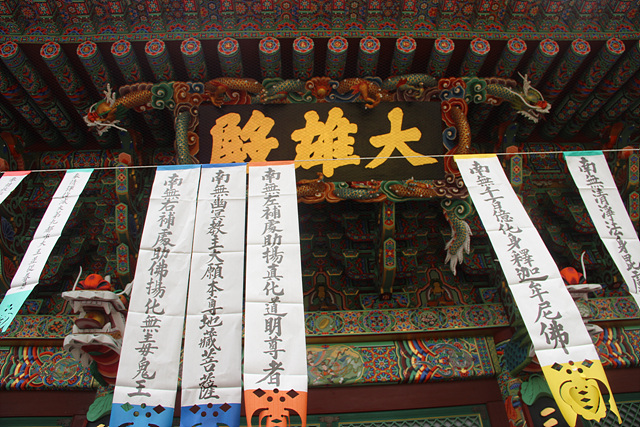 大雄殿
南無清淨法身毘盧
南無千百億化身釋迦牟尼佛
南無左補處助揚真化道明尊者
南無幽冥教主大願本尊地藏菩薩
南無右補處助佛揚化無毒鬼王